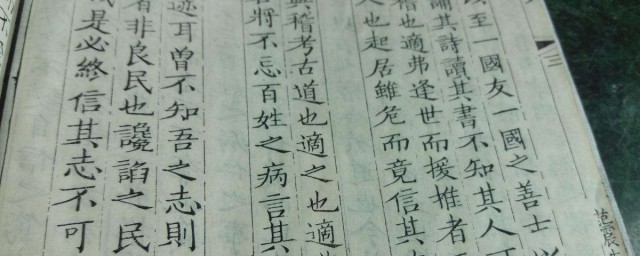 三
至一國友一國之善士
誦其詩讀其書不知其人可
稽也適弗逢世而援推者
人也起居雖危而竟信其
稽考古道也適之也適
將不忘百姓之病言其
迹耳曾不知吾之志則
有非良民也讒諂之民
是必終信其志不可